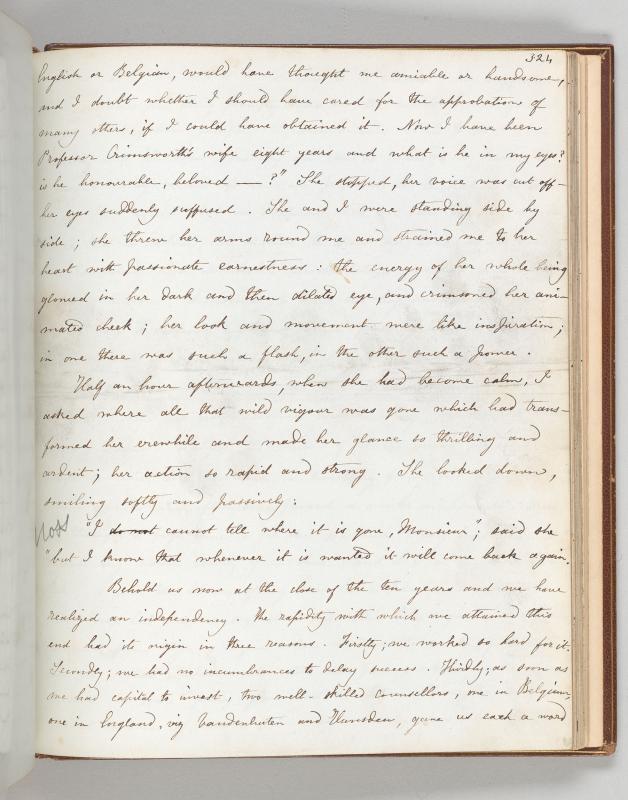 324
English or Belgian, would have thought me amiable or handsome,
and I doubt whether I should have cared for the approbation of
many others, if I could have obtained it. Now I have been
Professor Crimsworth's wife eight years and what is he in my eyes?
is he honourable, beloved —?" She stopped, her voice was cut off—
her eyes suddenly suffused. She and I were standing side by
side; she threw her arms round me and strained me to her
heart with passionate earnestness: the energy of her whole being
glowed in her dark and then dilated eye, and crimsoned her ani-
mated cheek; her look and movement were like inspiration;
in one there was such a flash, in the other such a power.
Half an hour afterwards, when she had become calm, I
asked where all that wild vigour was gone which had trans-
formed her erewhile and made her glance so thrilling and
ardent; her action so rapid and strong. She looked down,
smiling softly and passively:
"I do not cannot tell where it is gone, Monsieur"; said she
"but I know that whenever it is wanted it will come back again.
Behold us now at the close of the ten years and we have
realized an independency. The rapidity with which we attained this
end had its origin in three reasons. Firstly; we worked so hard for it.
Secondly; we had no incumbrances to delay success. Thirdly; as soon as
we had capital to invest, two well-skilled counsellors, one in Belgium,
one in England, viz Vandenhuten and Hunsden, gave us each a word